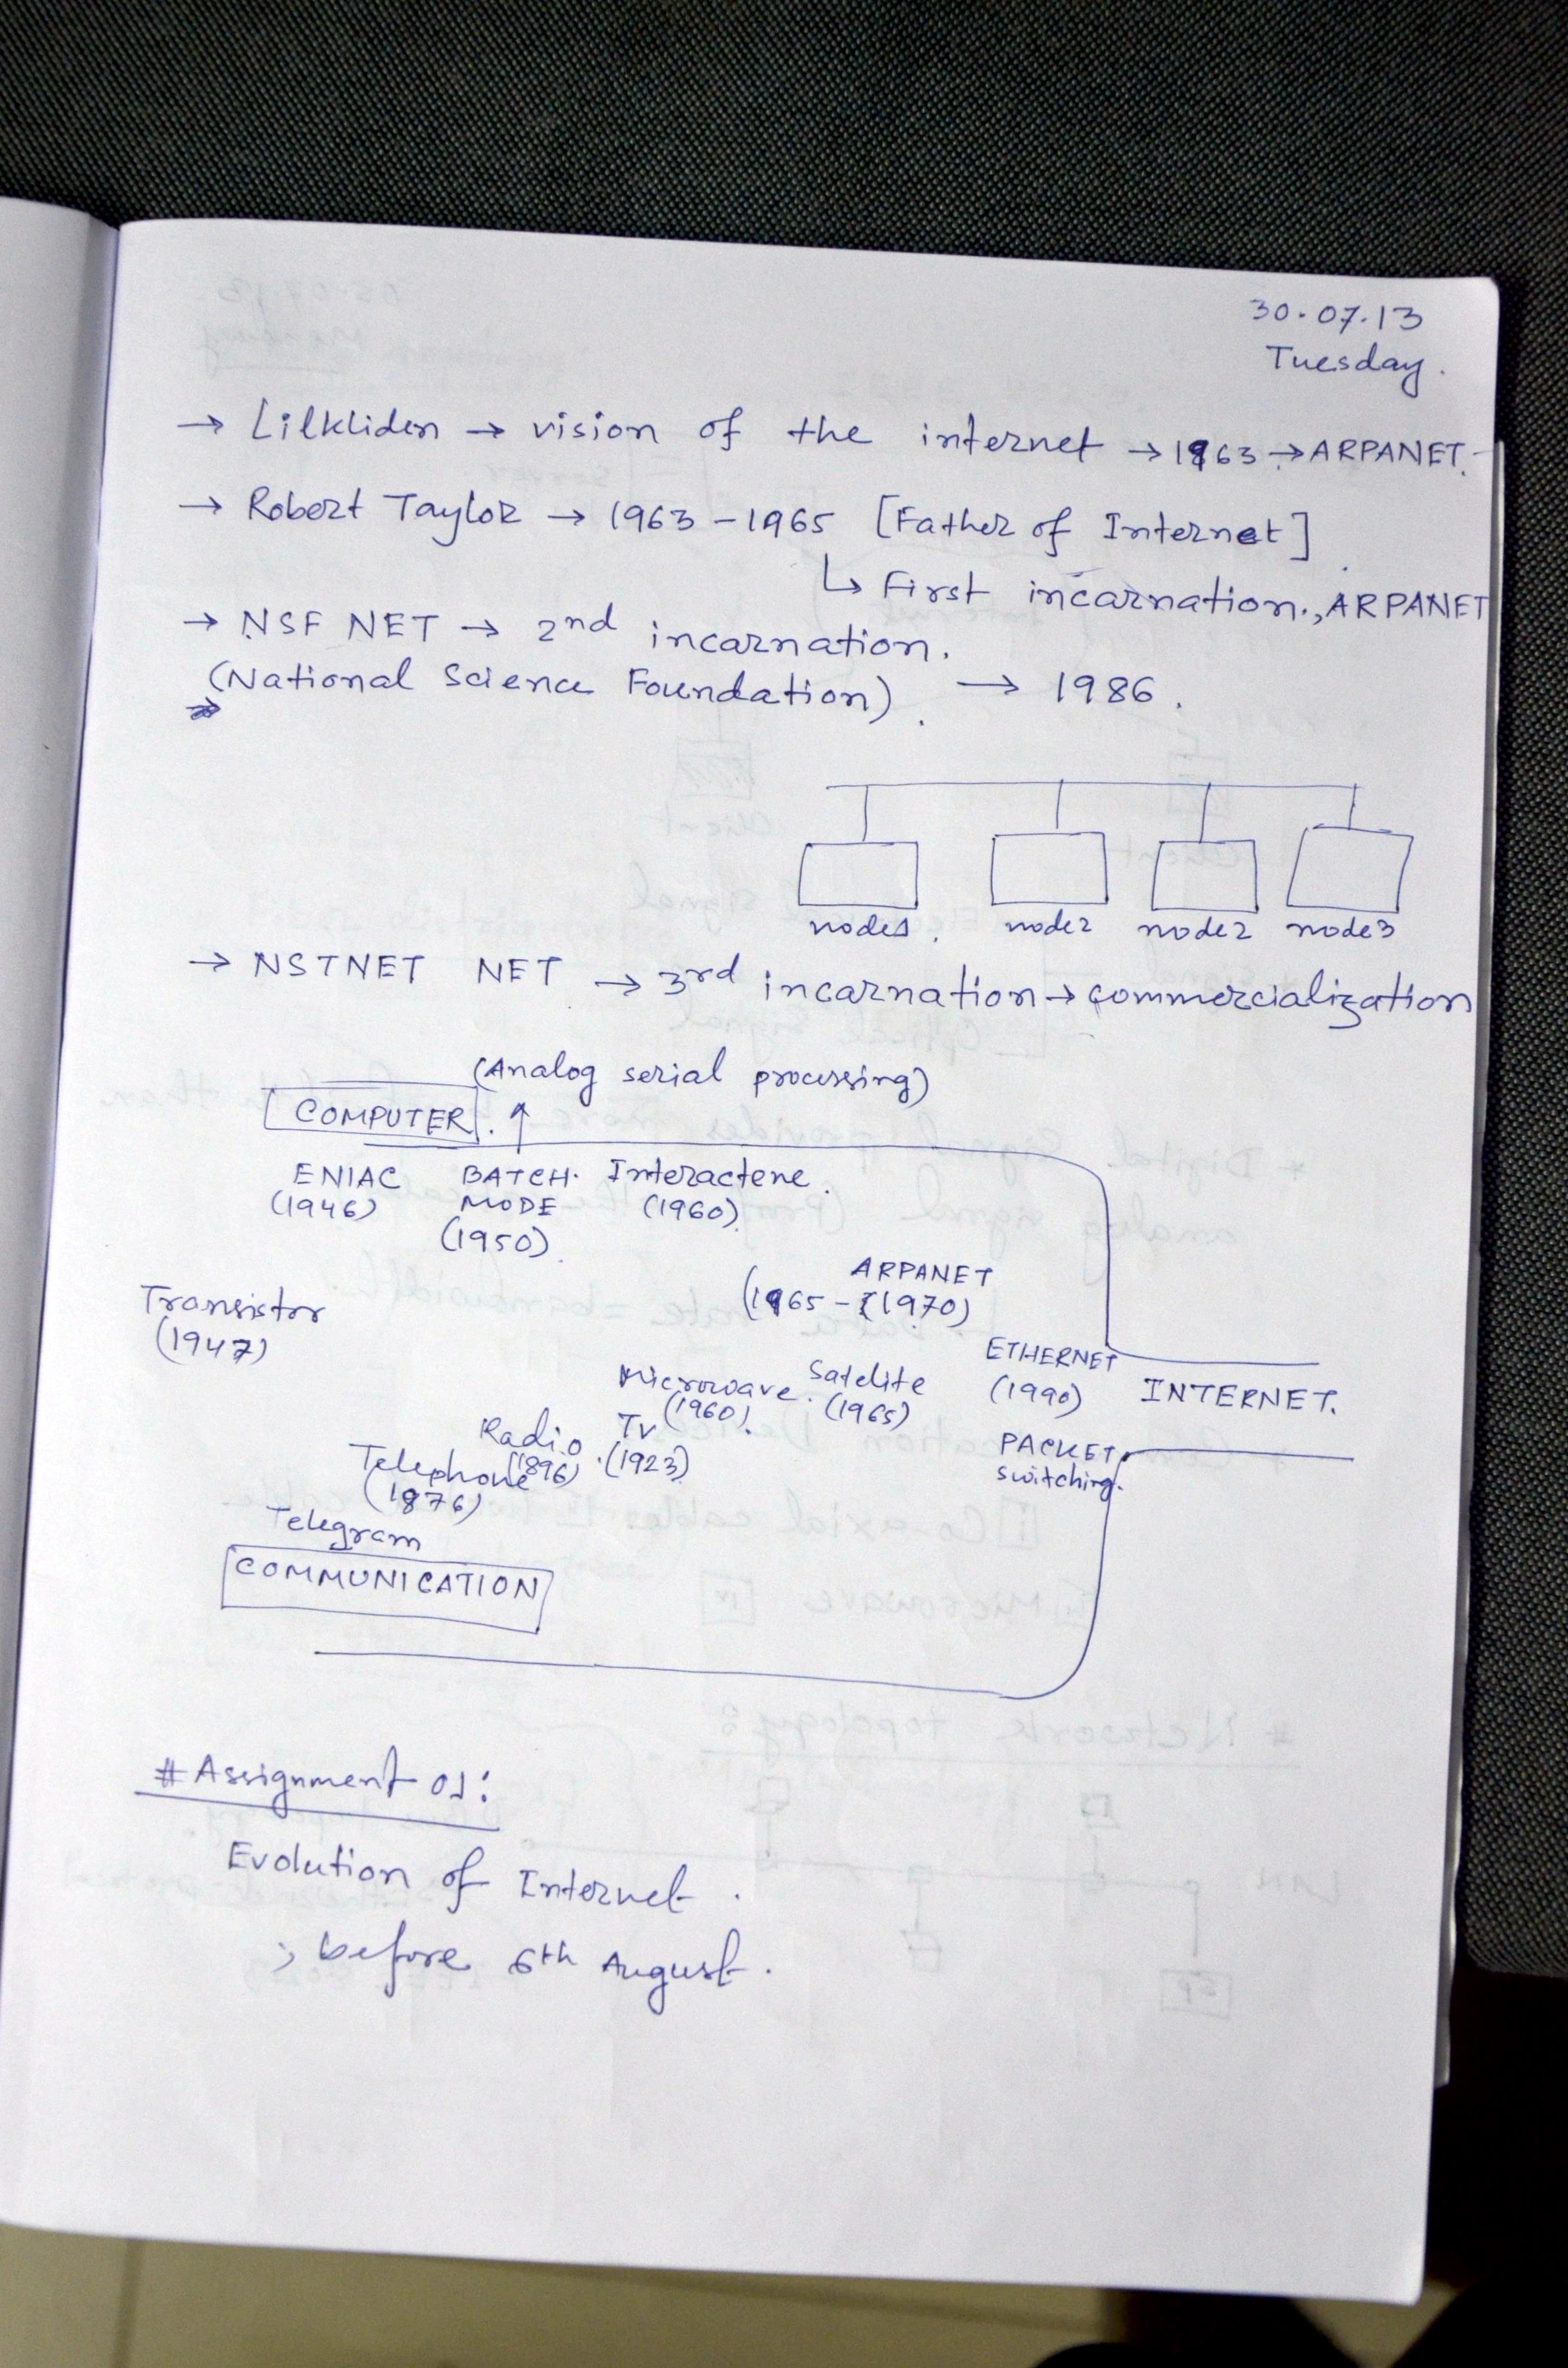 30.07.13
Tuesday.
→ Lilkliden → vision of the internet → 1963 → ARPANET.
→ Robert Taylor → 1963 - 1965 [Father of Internet]
↳ First incarnation., ARPANET
→ NSF NET → 2nd incarnation.
(National Science Foundation). → 1986.
node1. node2 node2 node3
→ NSTNET NET → 3rd incarnation → commercialization
(Analog serial processing)
COMPUTER. ↑
ENIAC BATCH. Interactene.
(1946) MODE (1960)
(1950)
ARPANET
(1965 - (1970)
Transistor
(1947)
ETHERNET
(1990) INTERNET.
Microwave. Satelite
(1960). (1965)
Radio TV
(1896) (1923)
PACKET
switching.
Telephone
(1876)
Telegram
COMMUNICATION
# Assignment 01:
Evolution of Internet.
; before 6th August.